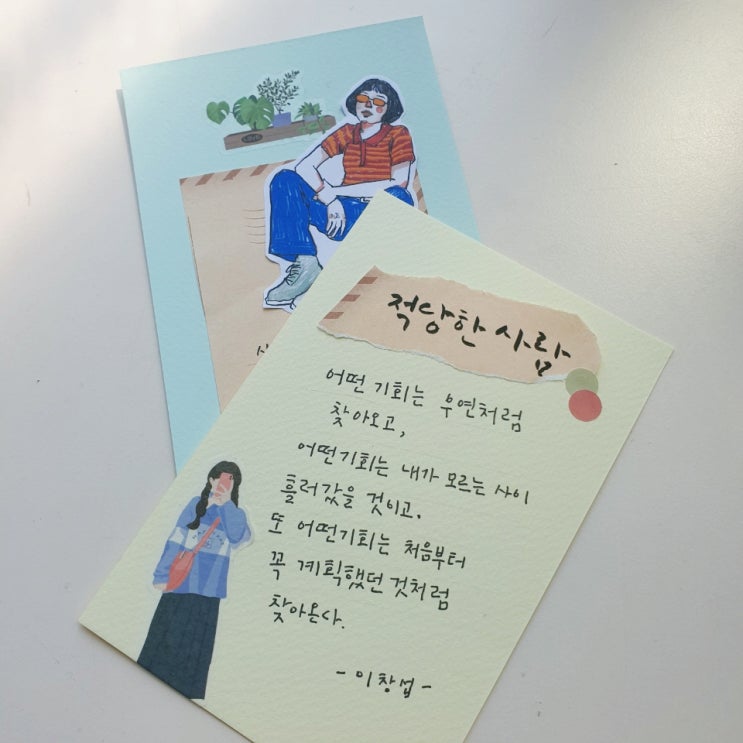 적당한 사람
어떤 기회는 우연처럼
찾아오고,
어떤기회는 내가 모르는 사이
흘러갔을 것이고.
또 어떤기회는 처음부터
꼭 계획했던 것처럼
찾아온다.
- 이창섭 -